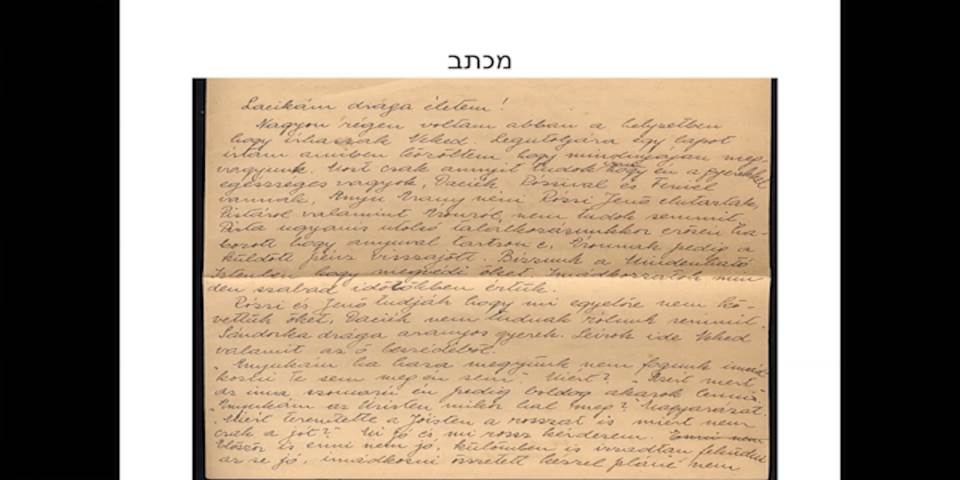 מכתב
Lacikám drága életem!
Nagyon régen voltam abban a helyzetben
hogy írhassak Neked. Legutoljára egy lapot
írtam amiben közöltem hogy mindnyájan meg-
vagyunk. Most csak annyit tudok hogy én a gyerekkel
egészséges vagyok, Daciék Rózsival és Ferivel
vannak, Anyu Irany néni Rózsi Jenő elutaztak,
Pistáról valamint nem tudok semmit.
Pista ugyanis utolsó találkozásunkkor erősen
hogy anyuval tartson e, pedig a
küldött pénz visszajött. Bízzunk a Mindenható
Istenben hogy megvédi őket. Imádkozzatok min-
den szabad időtökben értük.
Rózsi és Jenő tudják hogy mi egyelőre nem kö-
vettük őket, Daciék nem tudnak rólunk semmit.
Sándorka drága aranyos gyerek. Leírok ide Neked
valamit az ő beszédéből.
"Anyukám ha haza megyünk nem fogunk imád-
kozni te sem meg én sem". Miért? "Azért mert
az ima szomorú én pedig boldog akarok lenni".
"Anyukám az Úristen mikor hal meg?" Magyarázat.
"Miért teremtette a Jóisten a rosszat is miért nem
csak a jót?" Mi jó és mi rossz kérdezem.
Először is enni nem jó, különben is izzadtan
az se jó, imádkozni összetett kézzel pláne nem